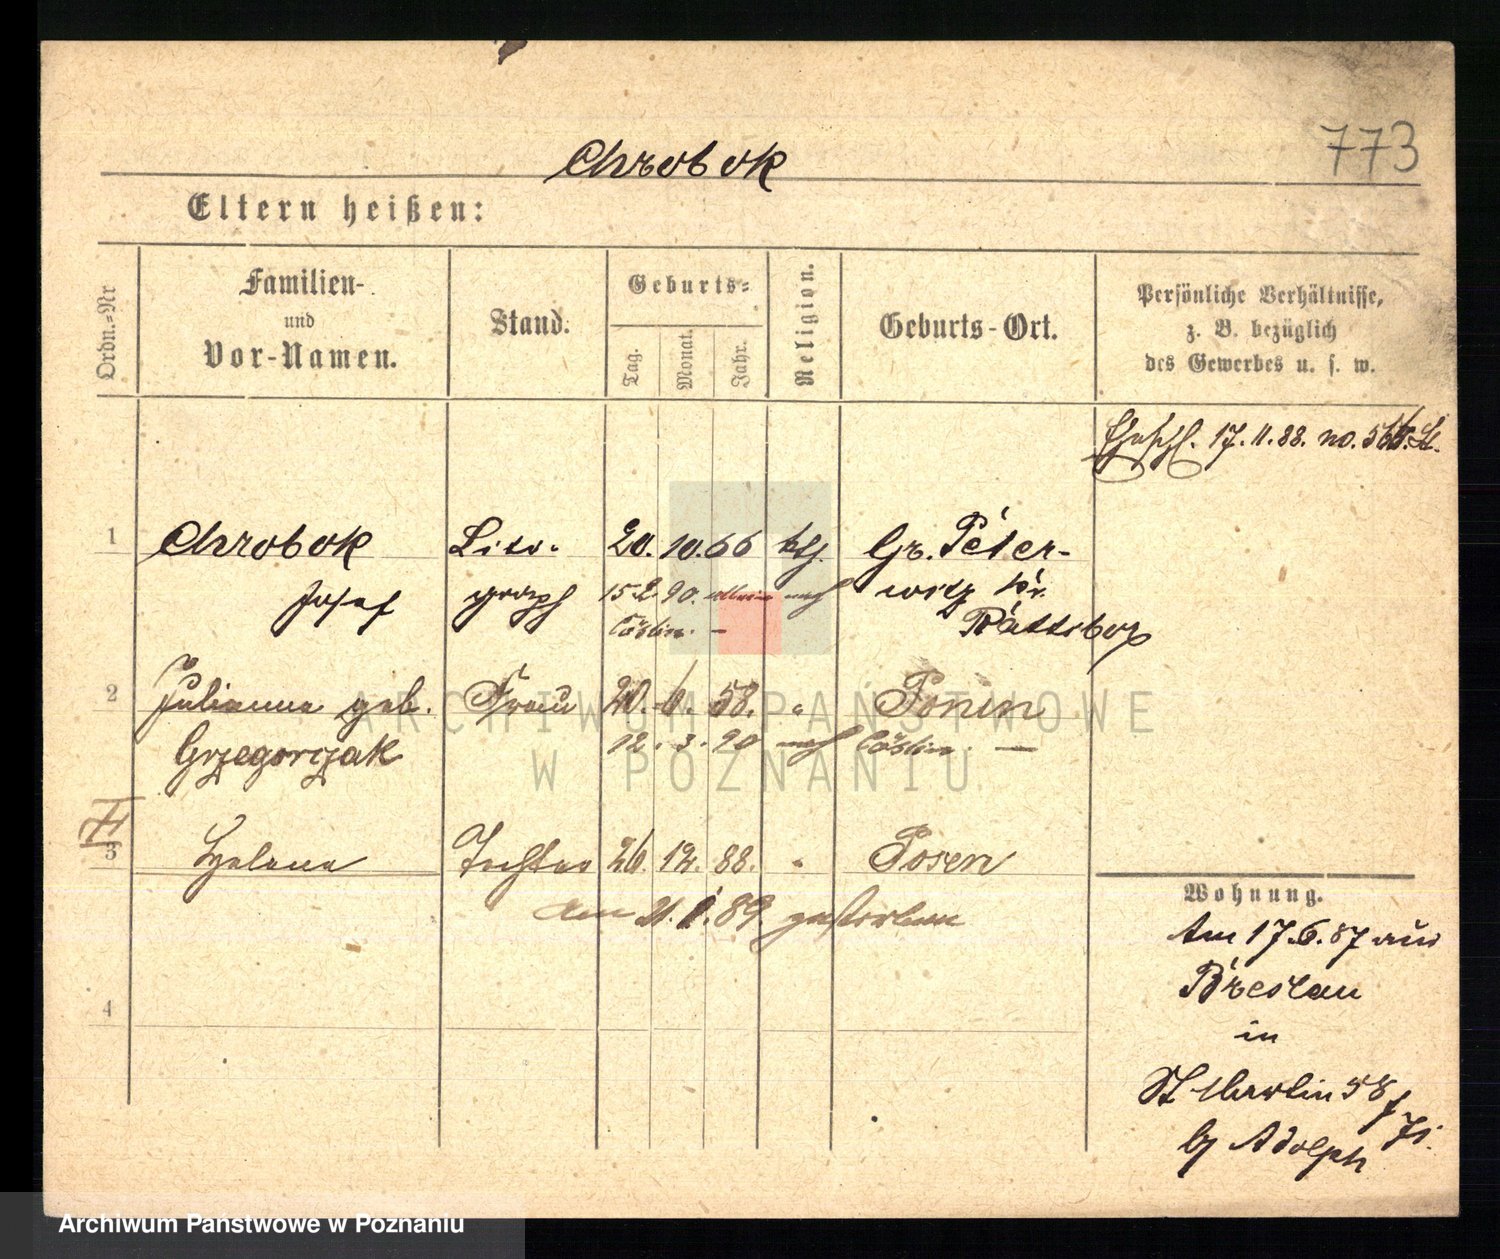 773
Chrobok
Eltern heißen:
Ordn.=Nr
Familien-
und
Vor-Namen.
Stand.
Geburts=
Tag.
Monat.
Jahr.
Religion.
Geburts-Ort.
Persönliche Verhältnisse,
z. B. bezüglich
des Gewerbes u. s. w.
17.11.88. no.
1 Chrobok Lito- 20. 10. 66 ktl. Gr. Peter-
Josef graph 15 2 90. allein nach witz Kr.
Cöslin. — Rattibor
2 Julianna geb. Frau 20. 6. 58. " Posen
Grzegorczak 12. 3. 90 nach Cöslin. —
3 Helene Tochter 26. 12. 88. " Posen
am 21. 1. 89. gestorben
4
Wohnung.
Am 17.6.87 aus
Breslau
in
St Martin 58
b/ Adolph
ARCHIWUM PAŃSTWOWE
W POZNANIU
Archiwum Państwowe w Poznaniu